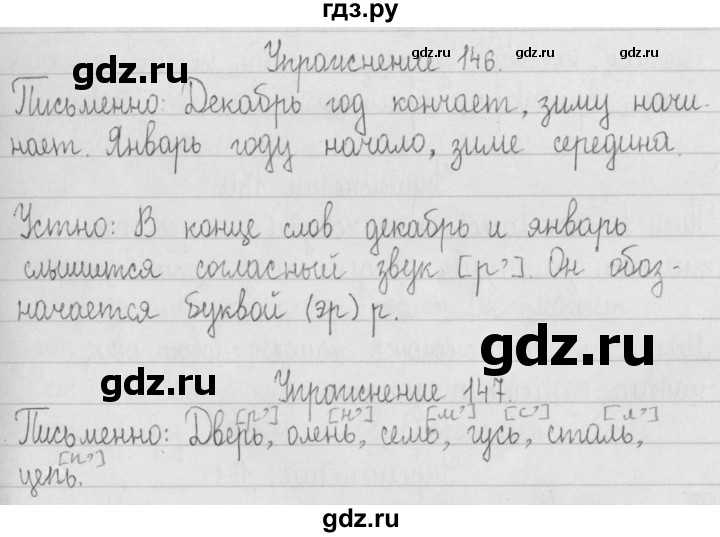 гдз.ру
Упражнение 146.
gdz.ru gdz.ru gdz.ru
gdz.ru
Письменно: Декабрь год кончает, зиму начи-
нает. Январь году начало, зиме середина.
Устно: В конце слов декабрь и январь
слышится согласный звук [р']. Он обоз-
начается буквой (эр) р.
gdz.ru
gdz.ru
Упражнение 147.
[р'] [н'] [м'] [с'] [л']
Письменно: Дверь, олень, семь, гусь, сталь,
[п']
цепь.
gdz.ru